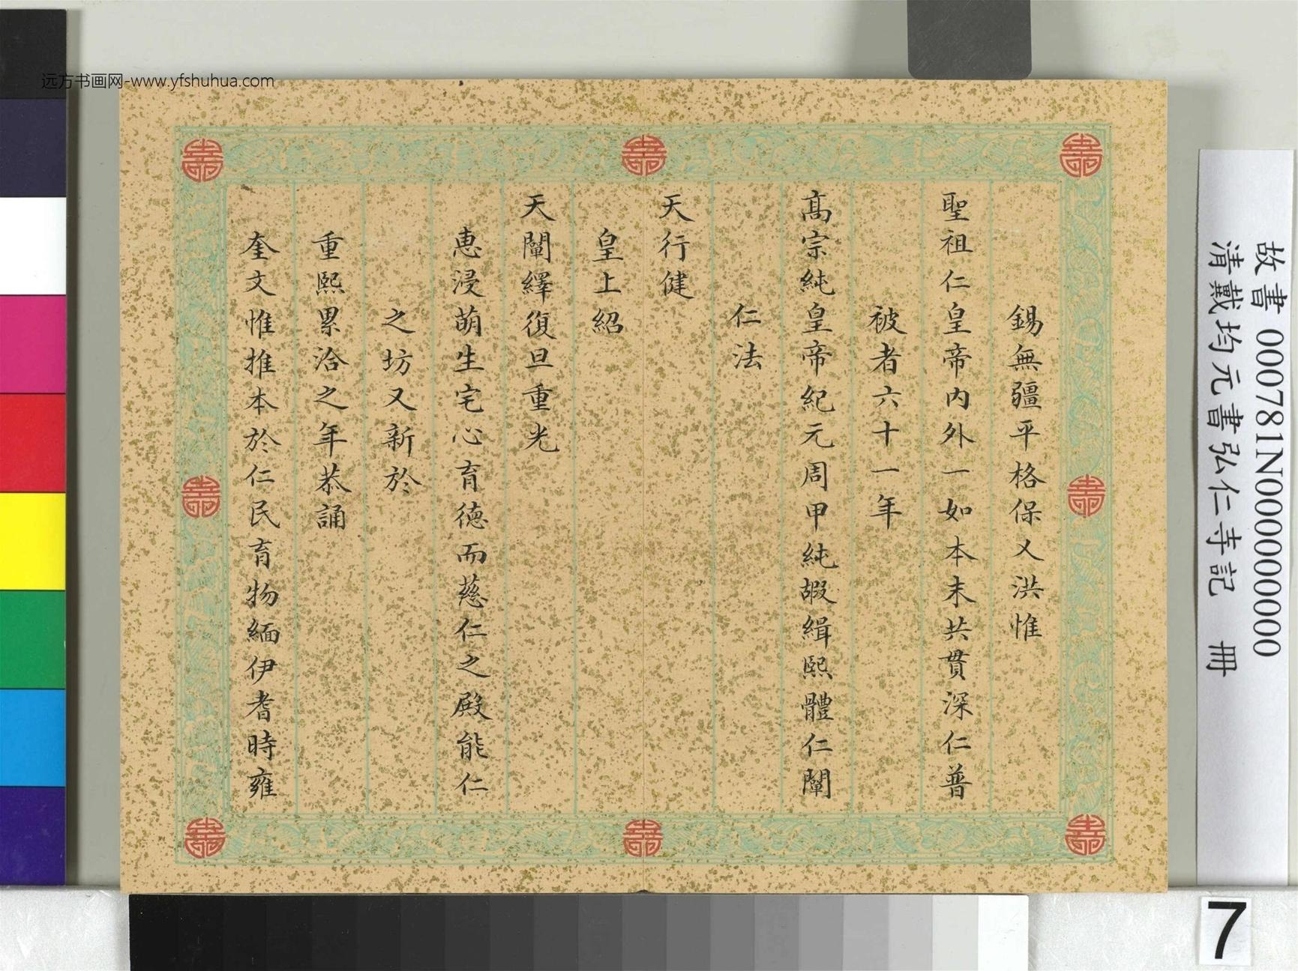 錫無疆平格保乂洪惟
聖祖仁皇帝内外一如本末共貫深仁普
被者六十一年
髙宗純皇帝紀元周甲純嘏緝熙體仁闡
仁法
天行健
皇上紹
天闡繹復旦重光
恵浸萌生宅心育德而慈仁之殿能仁
之坊又新於
重熙累洽之年恭誦
奎文惟推本於仁民育物緬伊耆時雍
故書 000781N000000000
清戴均元書弘仁寺記 冊
7
远方书画网-www.yfshuhua.com